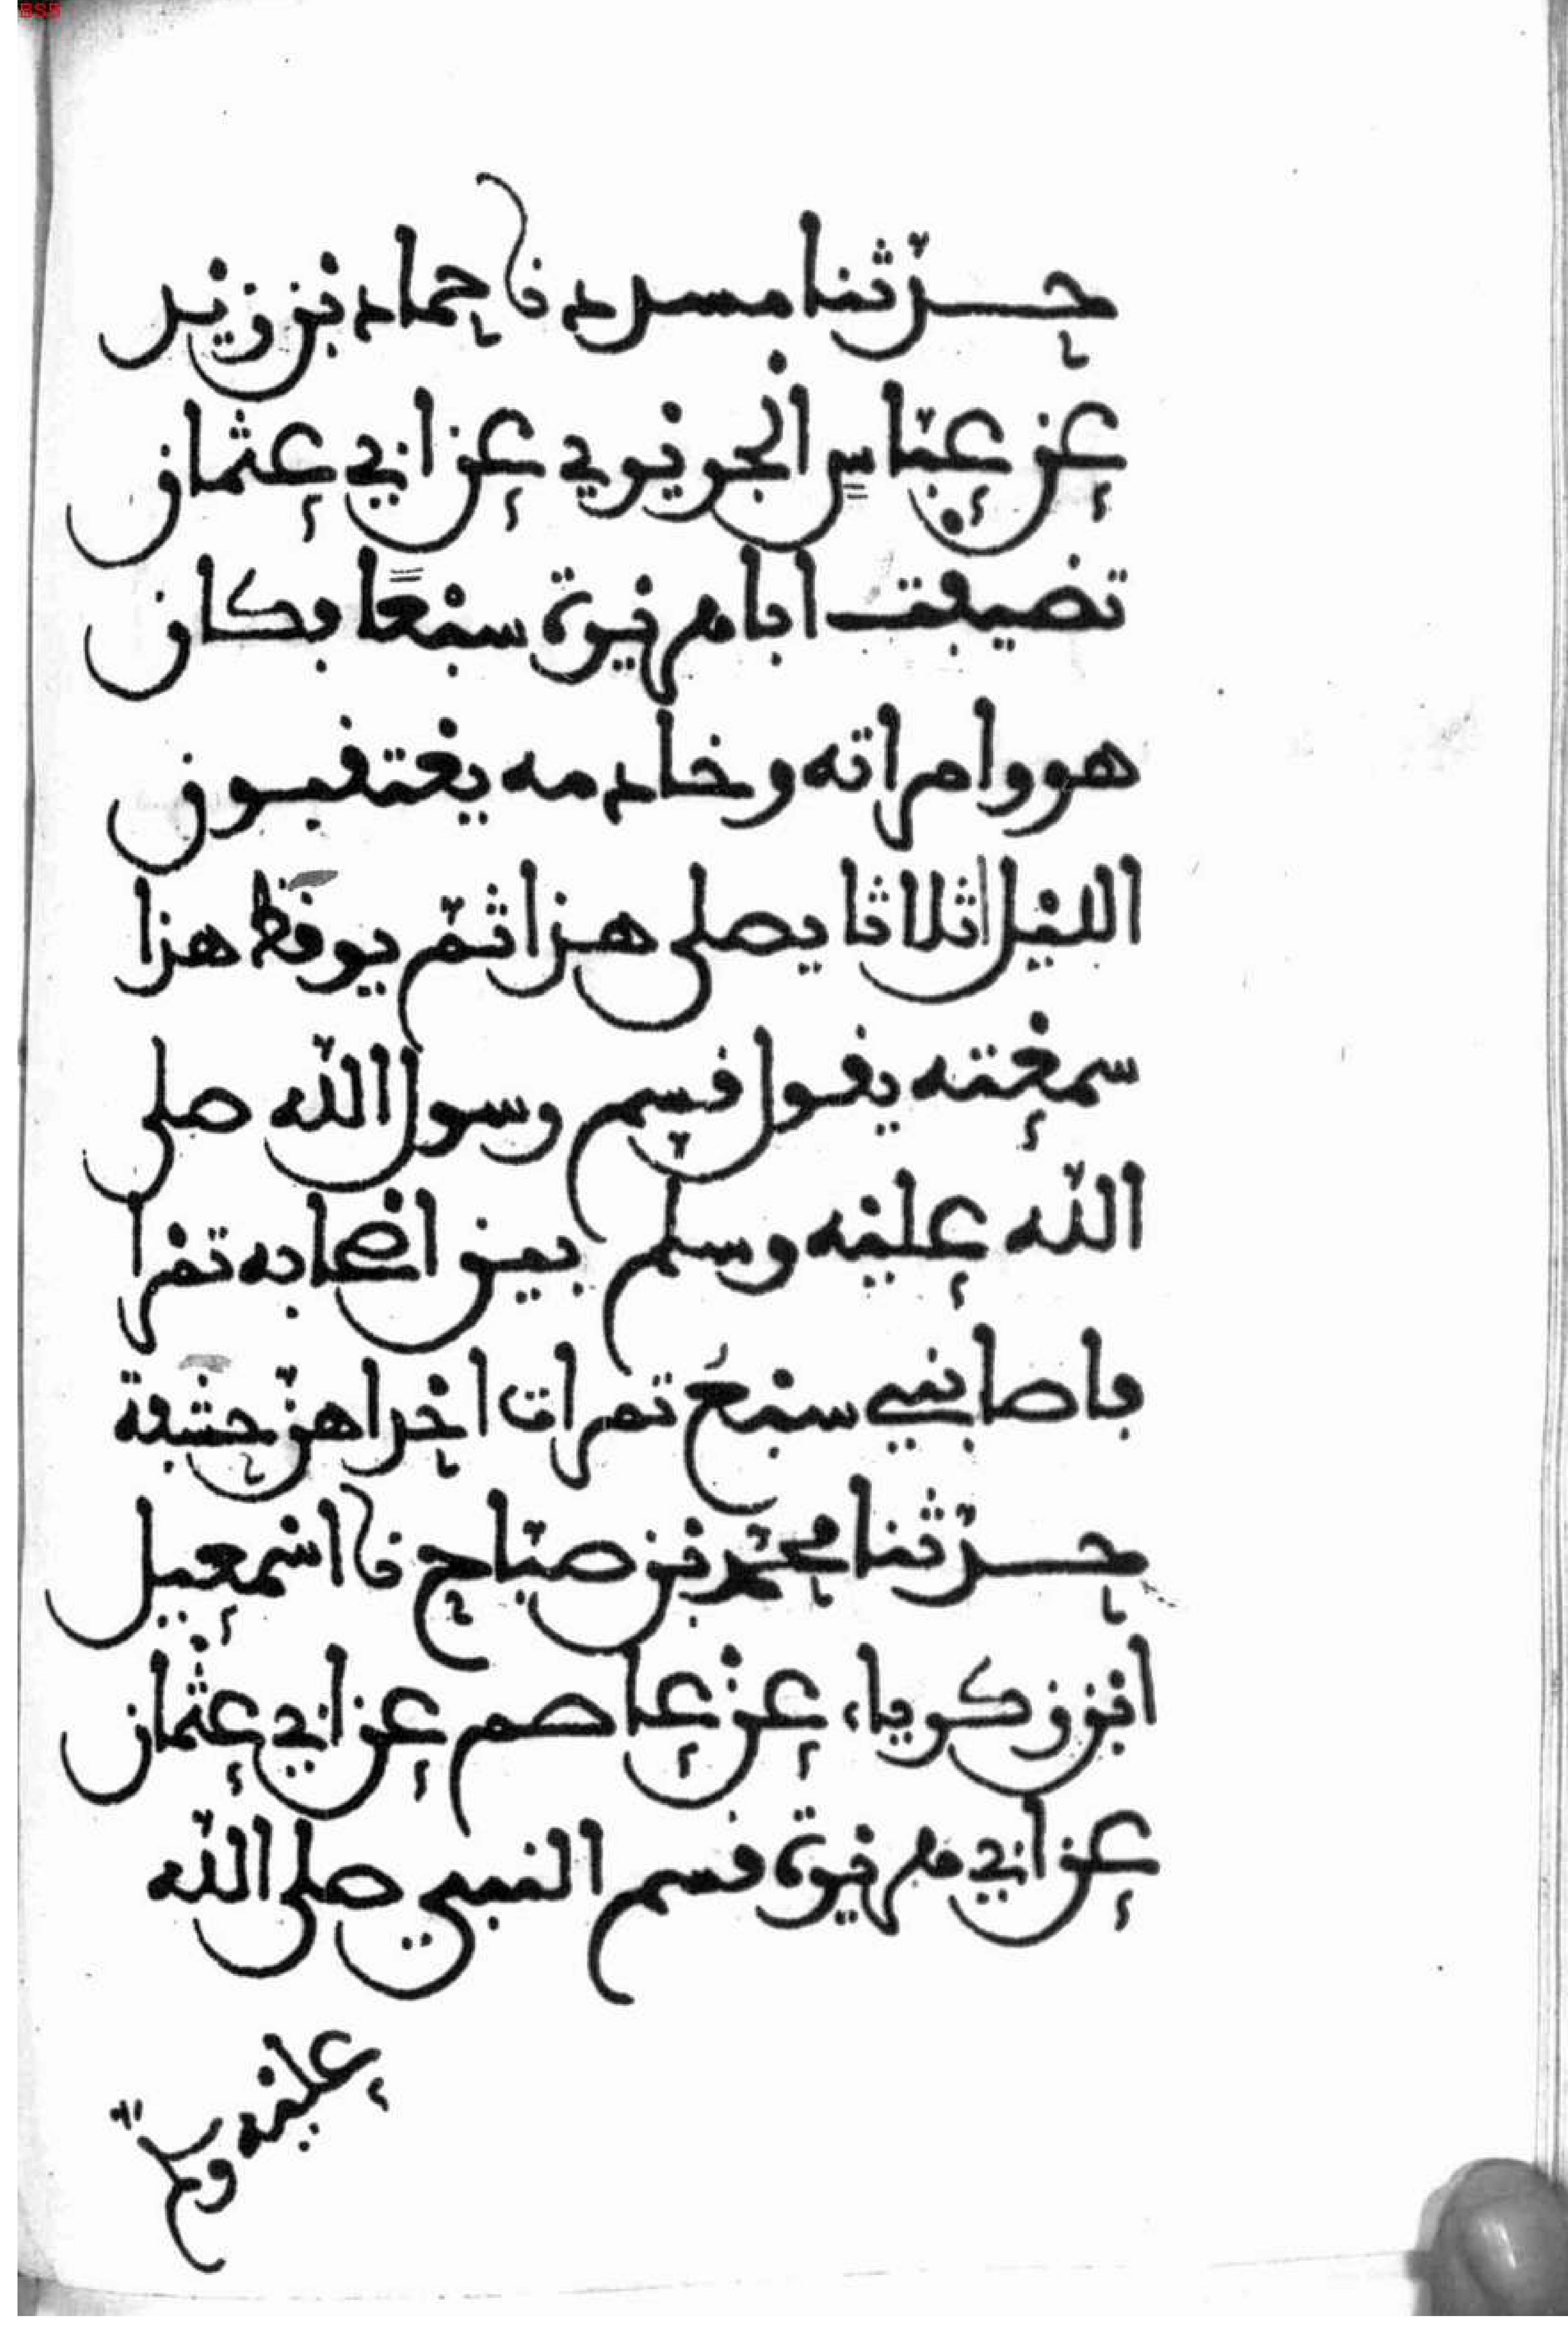 BSB
حدثنا مسدد نا حماد بن زيد
عن عباس الجريري عن ابي عثمان
تضيفت ابا هريرة سبعا فكان
هو وامراته وخادمه يعتقبون
الليل اثلاثا يصلي هذا ثم يوقظ هذا
سمعته يقول قسم رسول الله صلى
الله عليه وسلم بين اصحابه تمرا
فاصابني سبع تمرات احداهن حشفة
حدثنا محمد بن صباح نا اسمعيل
ابن زكرياء عن عاصم عن ابي عثمان
عن ابي هريرة قسم النبي صلى الله
عليه وسلم